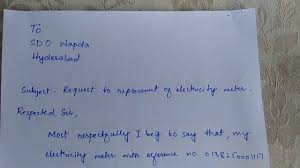 To
SDO Wapda
Hyderabad
Subject. Request to replacment of electricity meter.
Respected Sir,
Most respectfully I beg to say that, my
electricity meter with reference no. 01382500011157